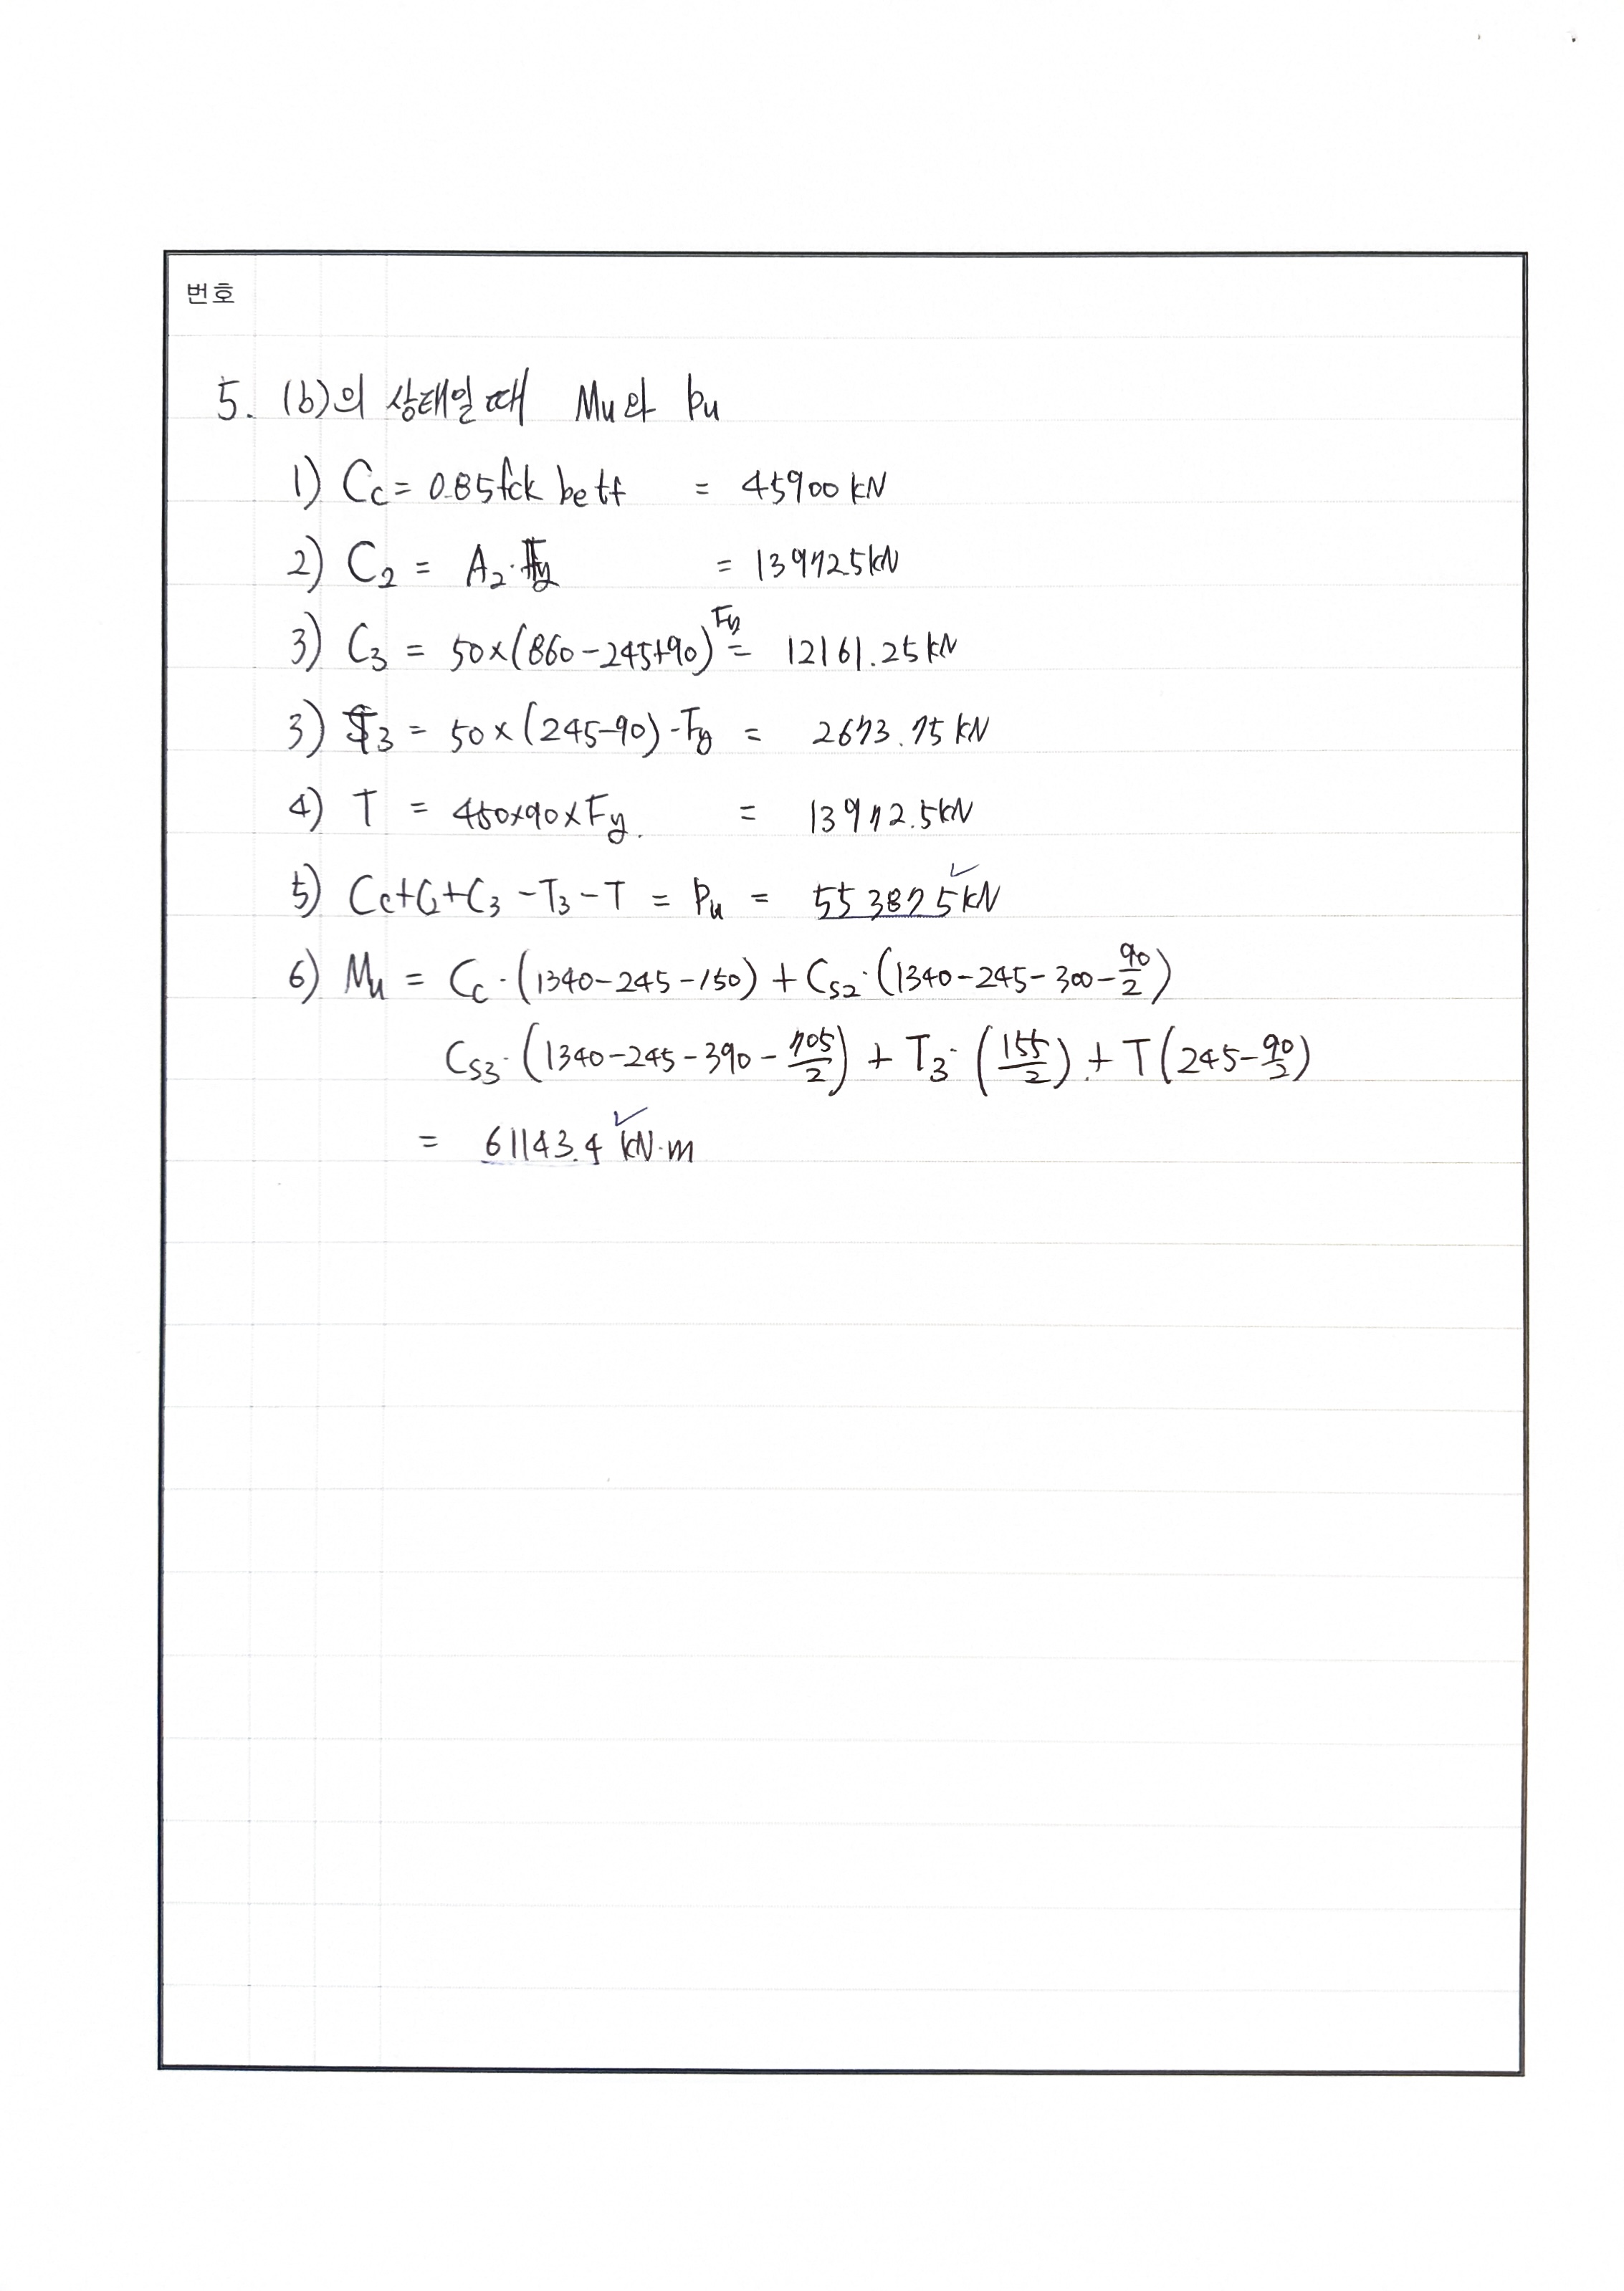 번호
5. (b)의 상태일 때 Mu와 Pu
1) Cc = 0.85fck be tf = 45900 kN
2) C2 = A2·Fy = 13972.5kN
3) C3 = 50×(860-245+90)Fy = 12161.25kN
3) T3 = 50×(245-90)·Fy = 2673.75 kN
4) T = 450×90×Fy. = 13972.5kN
5) Cc+C2+C3-T3-T = Pu = 55387.5kN
6) Mu = Cc·(1340-245-150) + Cs2·(1340-245-300-90/2)
Cs3·(1340-245-390-705/2) + T3·(155/2) + T(245-90/2)
= 61143.4 kN·m